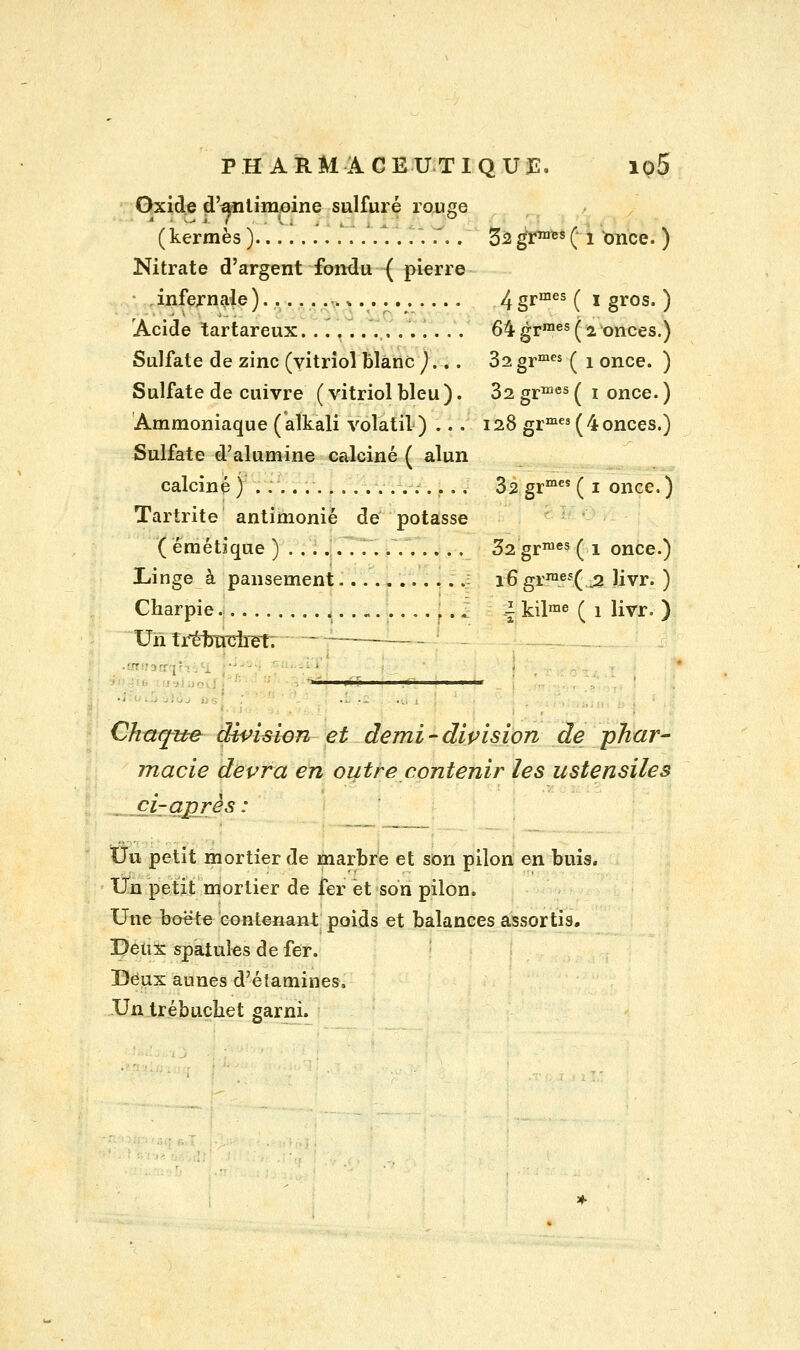 PHARMACEUTIQUE. 105
Oxide d'antimoine sulfuré rouge
(kermès)........................ 32 grmes ( 1 once. )
Nitrate d'argent fondu ( pierre
infernale).................... 4 grmes ( 1 gros. )
Acide tartareux................ 64 grmes ( 2 onces.)
Sulfate de zinc (vitriol blanc )... 32 grmes ( 1 once. )
Sulfate de cuivre ( vitriol bleu ). 32 grmes ( 1 once. )
Ammoniaque (alkali volatil) ... 128 grmes ( 4 onces.)
Sulfate d'alumine calciné ( alun
calciné ) ..................... 32 grmes ( 1 once. )
Tartrite antimonié de potasse
( émétique ) .................. 32 grmes ( 1 once.)
Linge à pansement............. 16 grmes ( 2 livr. )
Charpie....................... ½ kilme ( 1 livr. )
Un trébuchet.
Chaque division et demi-division de phar-
macie devra en outre contenir les ustensiles
ci-après :
Un petit mortier de marbre et son pilon en buis.
Un petit mortier de fer et son pilon.
Une boëte contenant poids et balances assortis.
Deux spatules de fer.
Deux aunes d'étamines.
Un trébuchet garni.
*